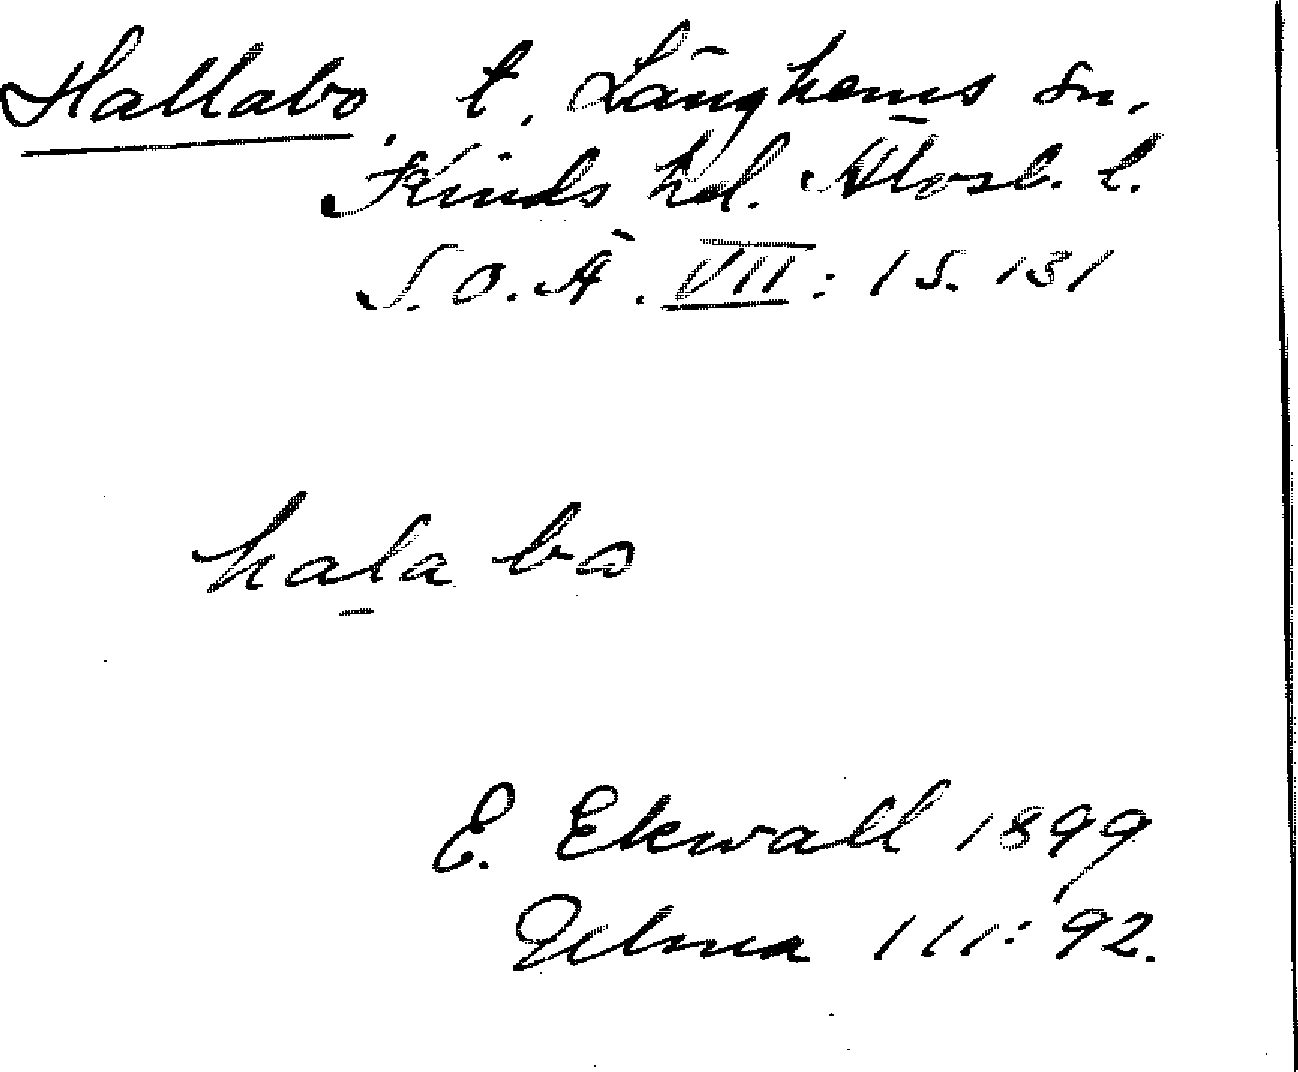 Hallabo, t. Länghems sn.
Kinds hd. Älvsb. l.
S.O.Ä. VII: 1 S. 131
hala bo
E. Ekwall 1899
Ulma 111: 92.